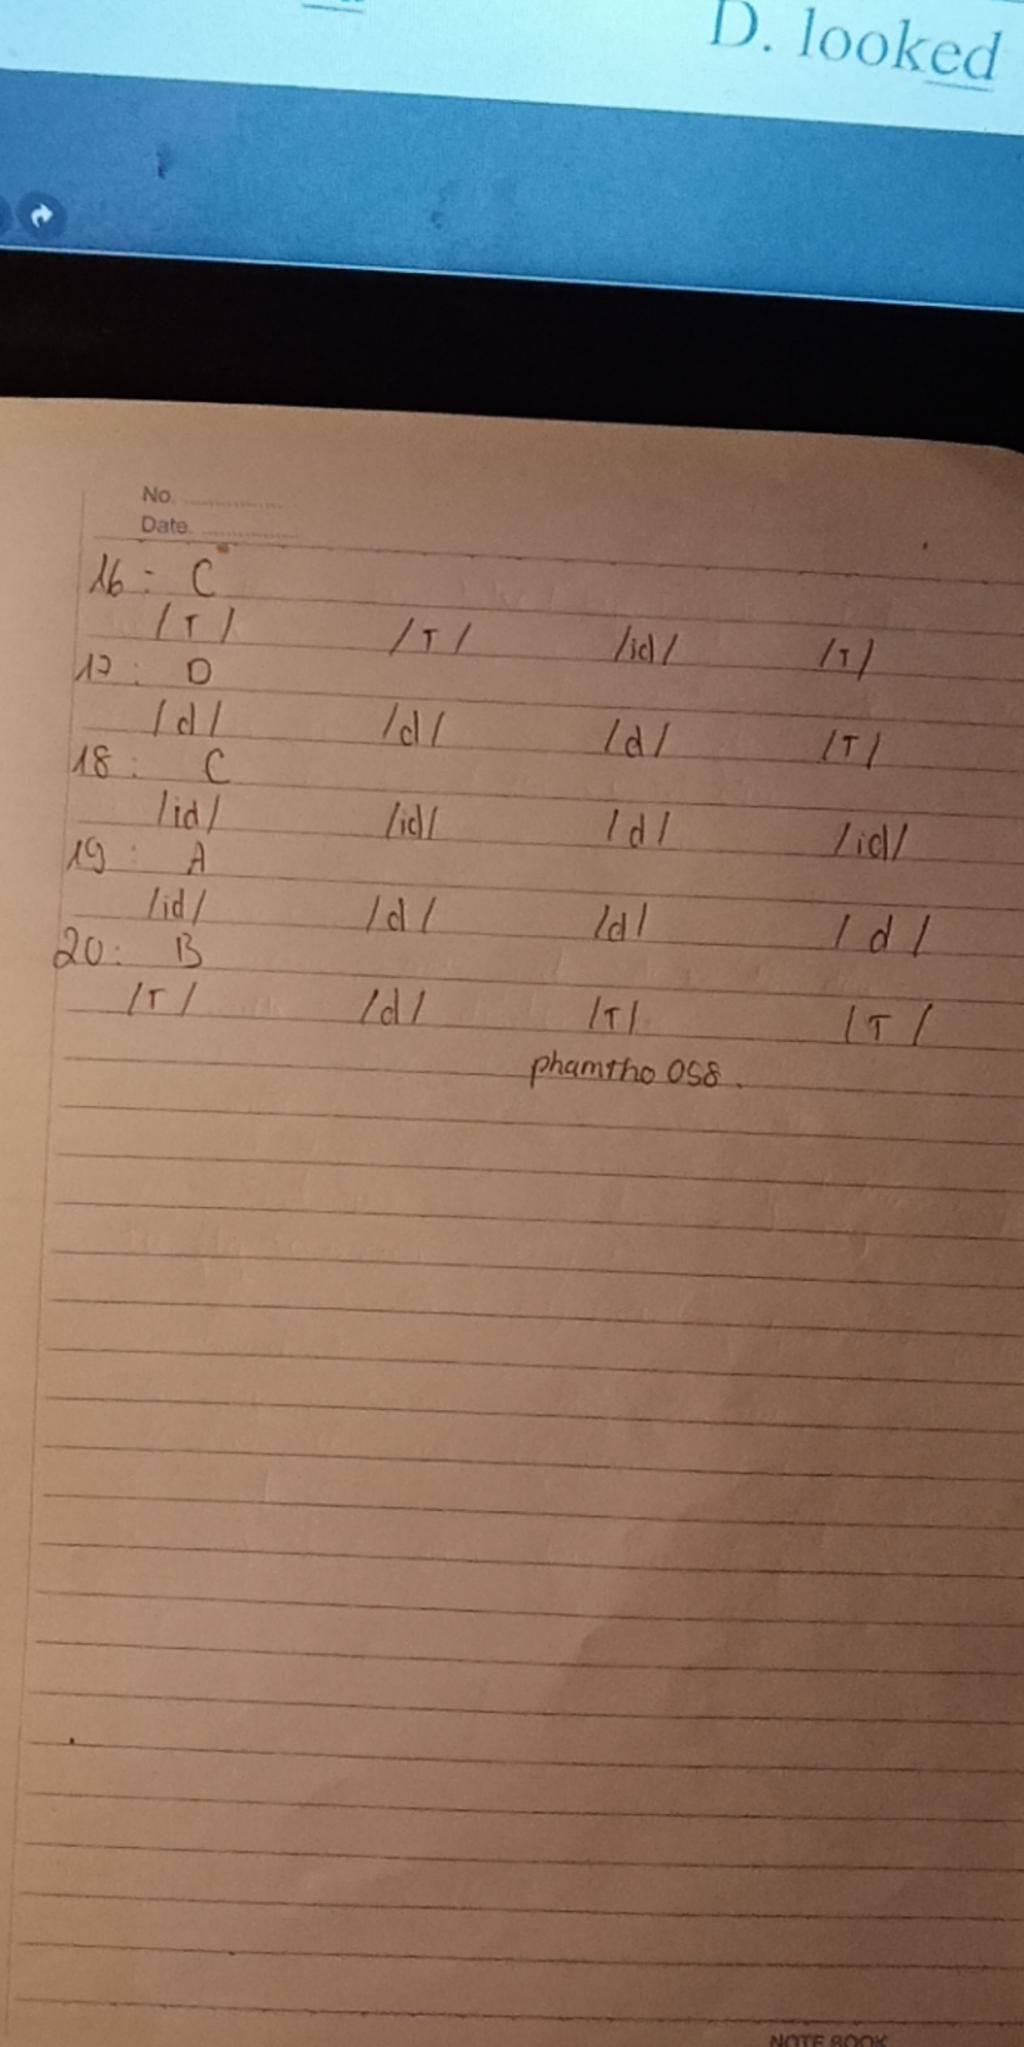 D. looked
No.
Date.
16 : C
/T/ /T/ /id/ /T/
17 : D
/d/ /d/ /d/ /T/
18 : C
/id/ /id/ /d/ /id/
19 : A
/id/ /d/ /d/ /d/
20 : B
/T/ /d/ /T/ /T/
phamtho 058.
NOTE BOOK